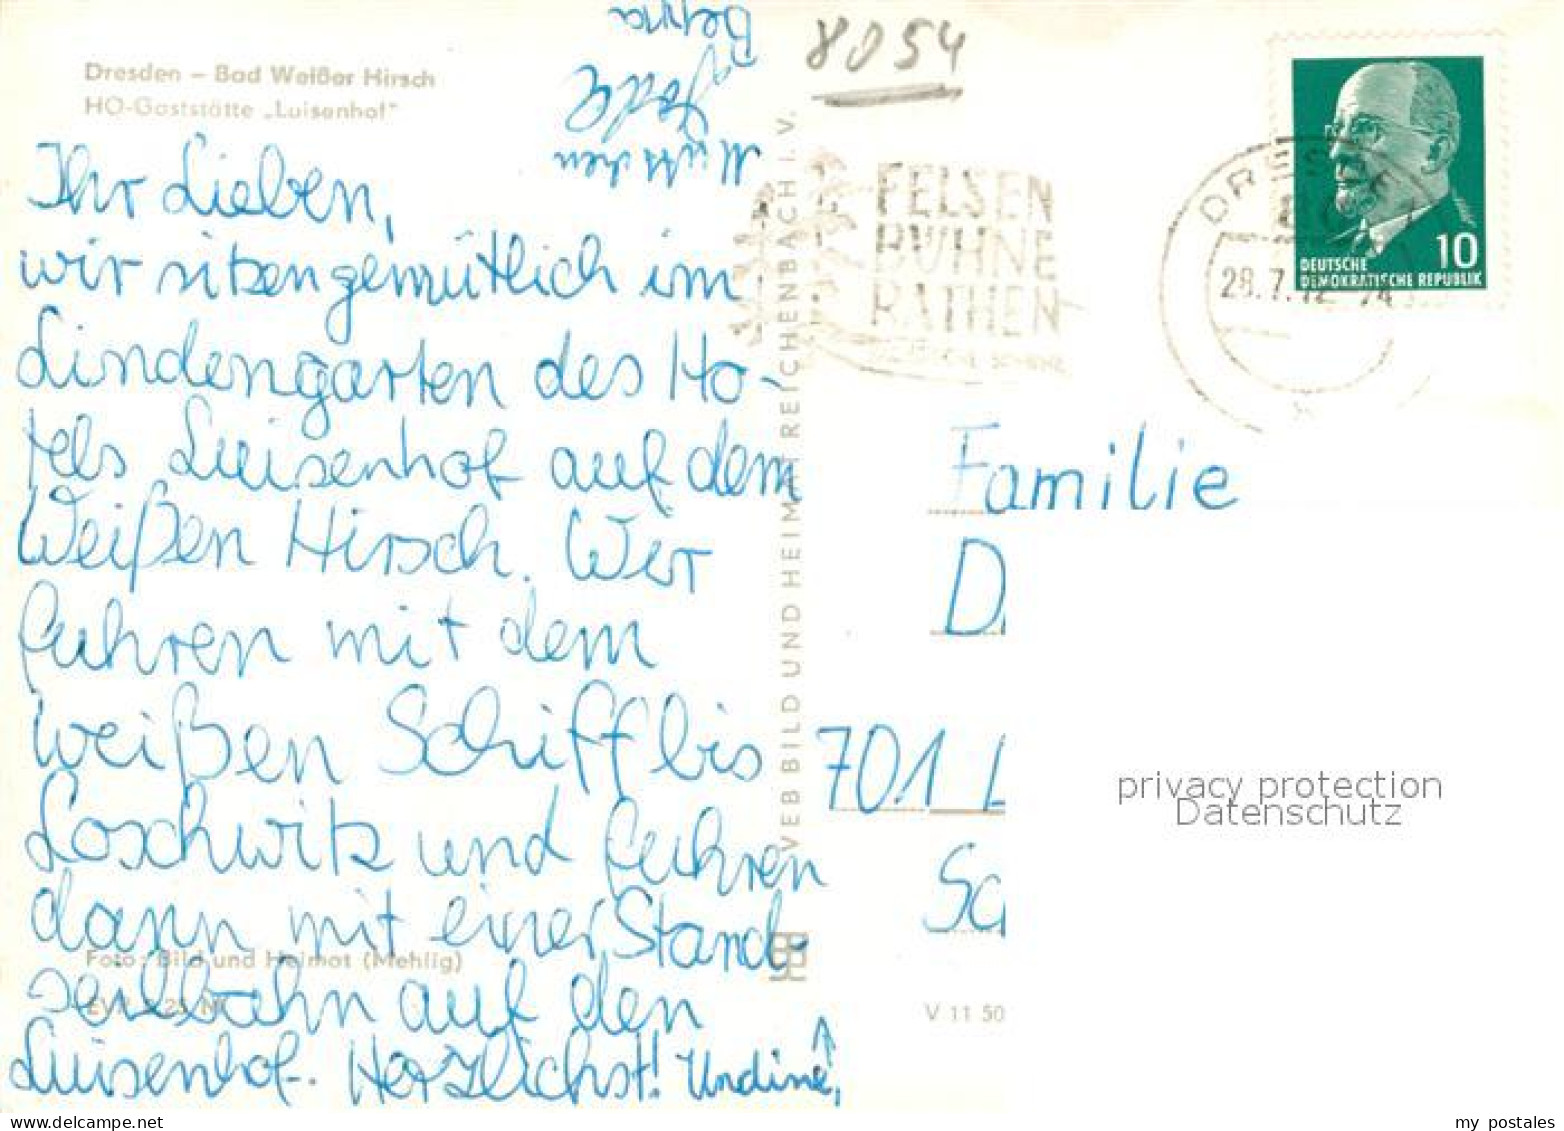 Dresden – Bad Weißer Hirsch
HO-Gaststätte „Luisenhof“
Ihr Lieben,
wir sitzen gemütlich im
Lindengarten des Ho-
tels Luisenhof auf dem
Weißen Hirsch. Wir
fuhren mit dem
weißen Schiff bis
Loschwitz und fuhren
dann mit einer Stand-
seilbahn auf den
Luisenhof. Herzlichst! Undine,
Foto: Bild und Heimat (Mehlig)
VEB BILD UND HEIMAT REICHENBACH I. V.
8054
FELSEN
BÜHNE
RATHEN
DRESDEN
28.7.
10
DEUTSCHE
DEMOKRATISCHE REPUBLIK
Familie
D
701 L
Sc
V 11 50
privacy protection
Datenschutz
my postales